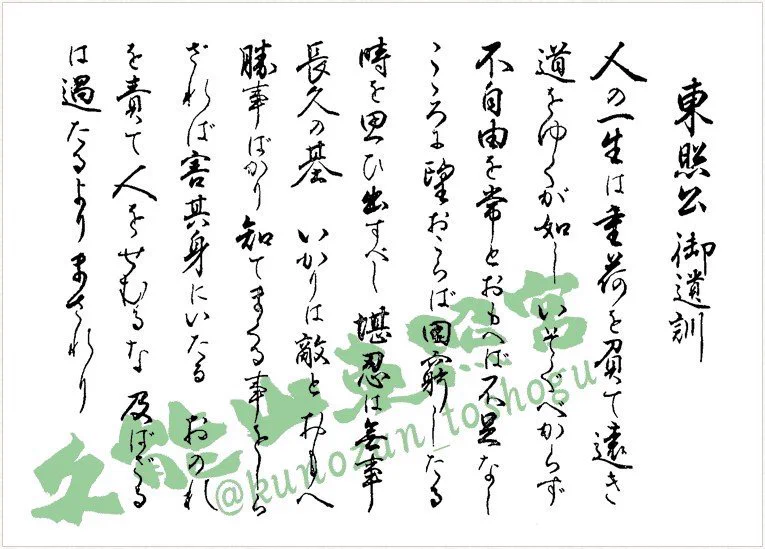 東照公御遺訓
人の一生は重荷を負て遠き
道をゆくが如しいそぐべからず
不自由を常とおもへば不足なし
こゝろに望おこらば困窮したる
時を思ひ出すべし 堪忍は無事
長久の基 いかりは敵とおもへ
勝事ばかり知てまくる事をしら
ざれば害其身にいたる おのれ
を責て人をせむるな 及ばざる
は過たるよりまされり
久能山東照宮
@kunozan_toshogu